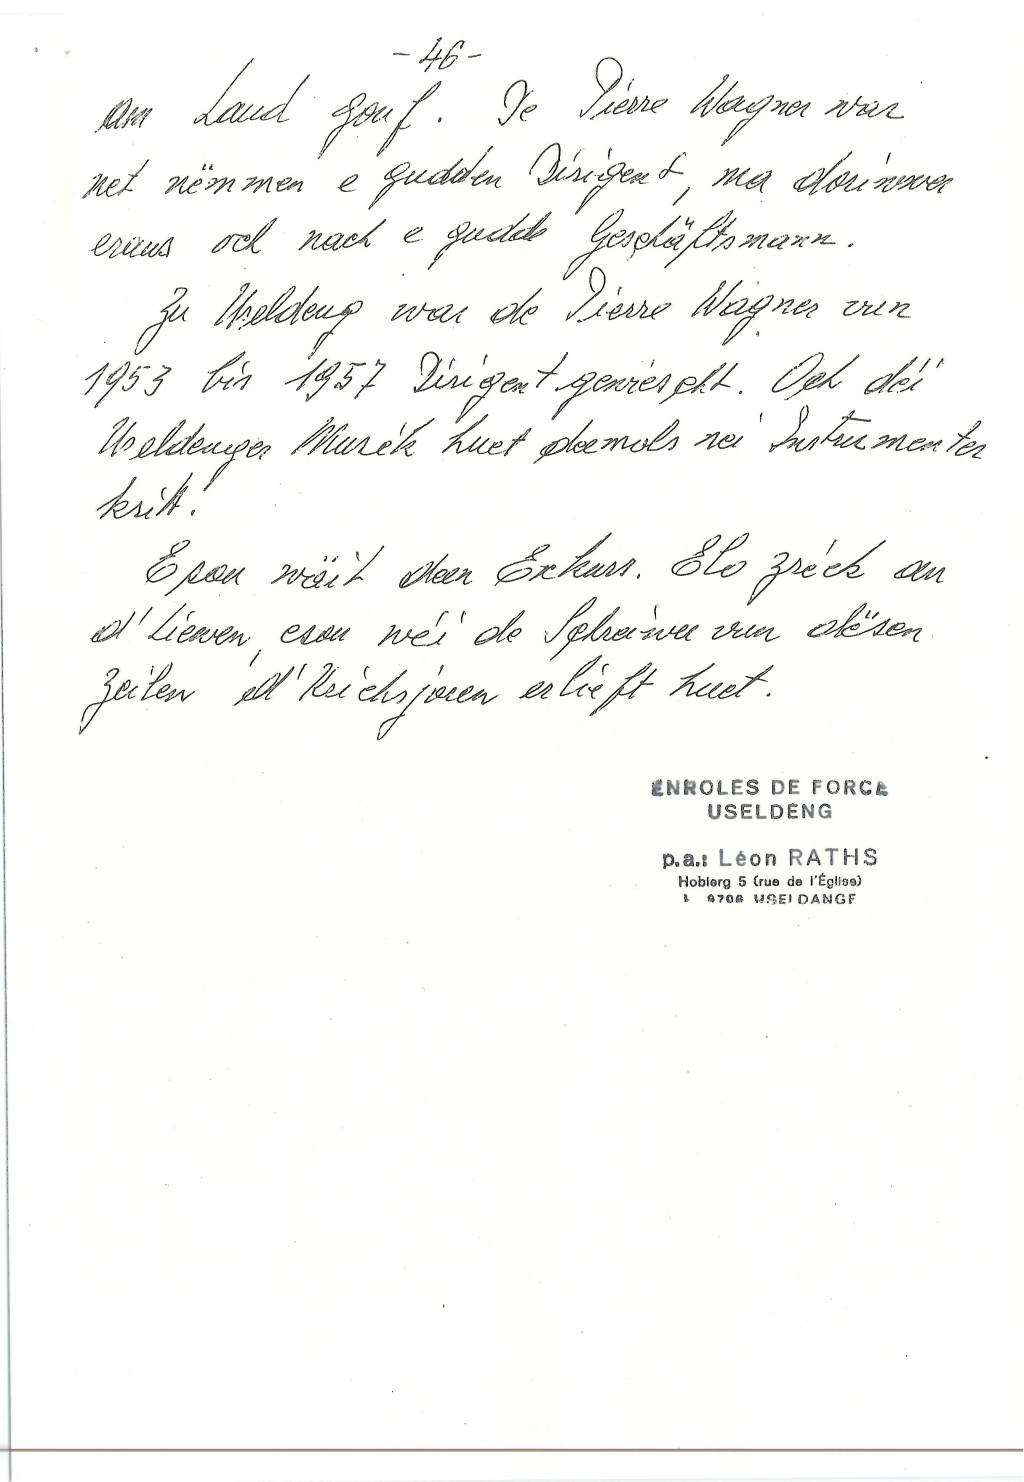 - 46 -
am Land gouf. De Pierre Wagner war
net nëmmen e gudden Dirigent, ma doriwwer
eraus och nach e gudde Geschäftsmann.
Zu Useldeng war de Pierre Wagner vun
1953 bis 1957 Dirigent gewiescht. Och déi
Useldenger Musék huet deemols nei Instrumenter
kritt.
Esou wäit deen Exkurs. Elo zréck an
d'Liewen, esou wéi de Schreiwer vun dësen
Zeilen d'Krichsjoren erlieft huet.
ENROLES DE FORCE
USELDENG
p.a.: Léon RATHS
Hobierg 5 (rue de l'Église)
L 8706 USELDANGE